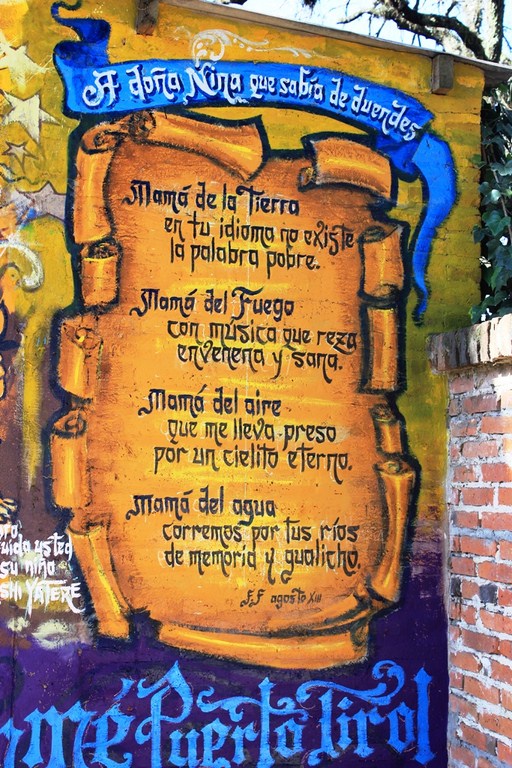 A doña Nina que sabía de duendes
Mamá de la Tierra
en tu idioma no existe
la palabra pobre.
Mamá del Fuego
con música que reza
envenena y sana.
Mamá del aire
que me lleva preso
por un cielito eterno.
Mamá del agua
corremos por tus ríos
de memoria y gualicho.
F.F agosto XIII
uida usted
su niño
SHI YATERÉ
mé Puerto Tirol